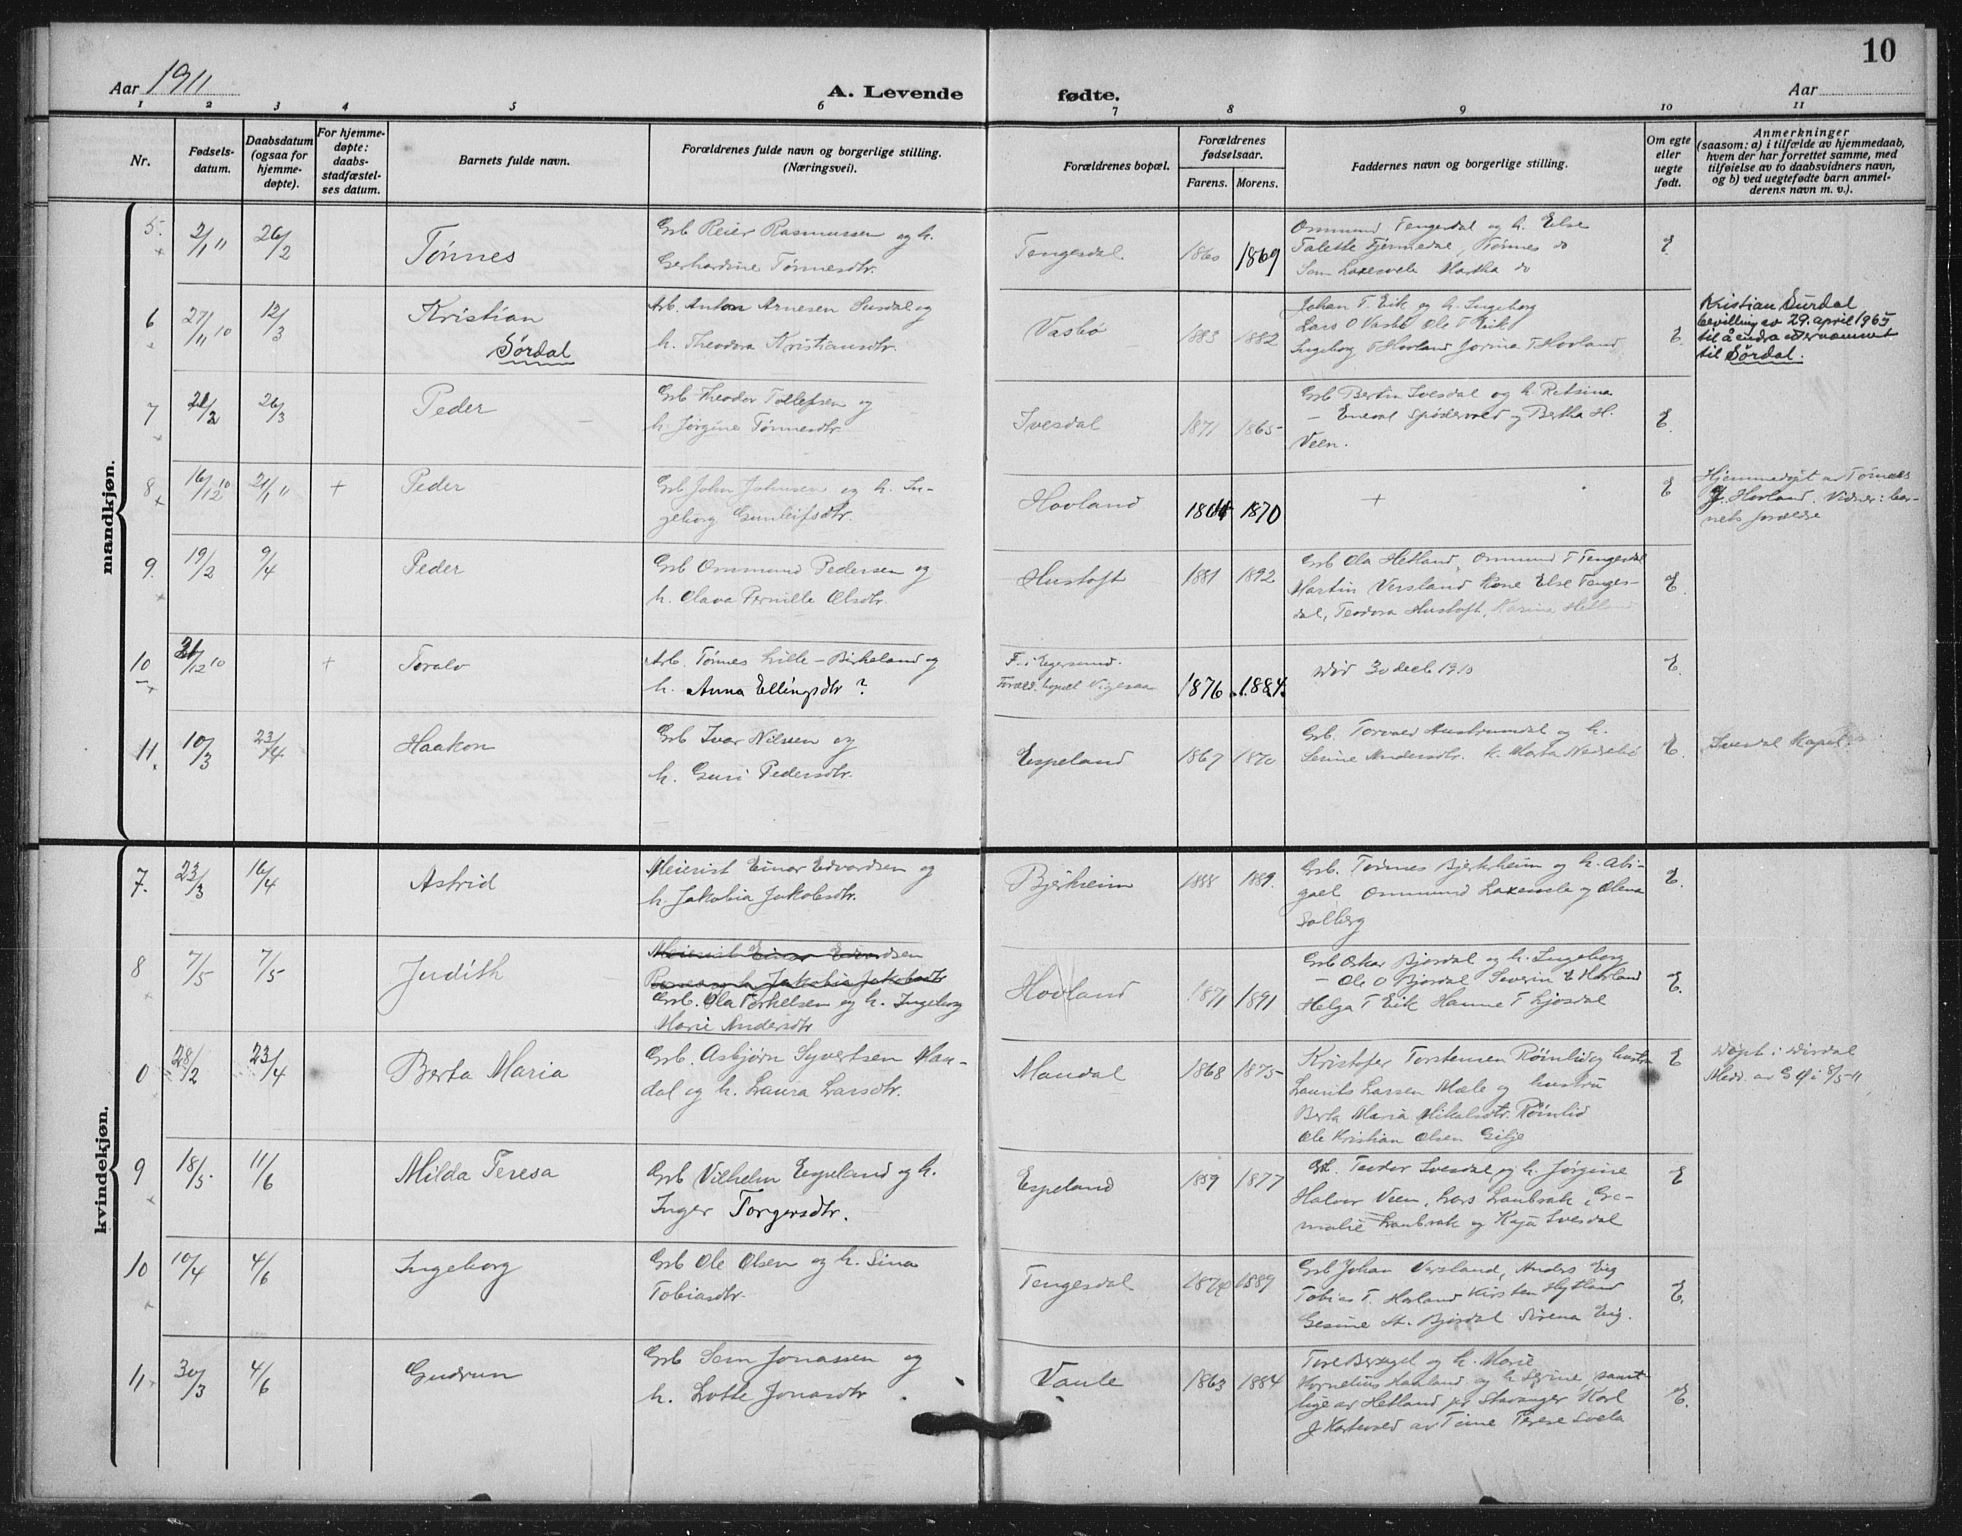 10
Aar 1911
A. Levende fødte.
Aar
1 2 3 4 5 6 7 8 9 10 11
Nr.
Fødsels-
datum.
Daabsdatum
(ogsaa for
hjemme-
døpte).
For hjemme-
døpte:
daabs-
stadfæstel-
ses datum.
Barnets fulde navn.
Forældrenes fulde navn og borgerlige stilling.
(Næringsvei).
Forældrenes bopæl.
Forældrenes
fødselsaar.
Farens. Morens.
Faddernes navn og borgerlige stilling.
Om egte
eller
uegte
født.
Anmerkninger
(saasom: a) i tilfælde av hjemmedaab,
hvem der har forrettet samme, med
tilføielse av to daabsvidners navn,
og b) ved uegtefødte barn anmel-
derens navn m. v.).
mandkjøn.
5. 2/1 11 26/2 Tønnes
Grb Reier Rasmussen og h.
Gerhardine Tønnesdtr.
Tengesdal 1860 1869
Ommund Tengesdal og h. Else
Talette Fjermedal, Tønnes do
Sem Laxesvele Martha do
E.
6 27/11 10 12/3 Kristian
Sørdal
Arb. Anton Arnesen Surdal og
h. Theodora Kristiansdtr.
Vasbø 1883 1882
Johan T. Eik og h. Ingeborg
Lars O Vasbø Ole T Eik
Ingeborg T Hovland Jorina T Hovland
E.
Kristian Surdal
bevilling av 29. april 1965
til å endra etternamnet
til Sørdal.
7 21/2 26/3 Peder
Grb Theodor Tollefsen og
h. Jørgine Tønnesdtr.
Ivesdal 1871 1865
Grb Bertin Ivesdal og h. Retsina
- Enevald Spødervold og Bertha H.
Veen.
E.
8 16/12 10 21/1 11 + Peder
Grb John Johnsen og h. In-
geborg Gunleifsdtr.
Hovland 1870
+
E
Hjemmedøpt av Tønnes
J. Hovland. Vidner: bar-
nets forældre
9. 19/2 9/4 Peder
Grb Ommund Pedersen og
h. Olava Pernille Olsdtr.
Hustoft 1881 1892
Grb Ola Hetland, Ommund T Tengesdal
Martin Versland kone Else Tenges-
dal, Teodora Hustoft, Karina Hetland
E.
10 21/12 10 + Toralv
Arb. Tønnes Lille-Birkeland og
h. Anna Ellingsdtr ?
F. i Egersund.
Foræld. bopæl Vigesaa
1876 1884.
Død 30 decb 1910
E.
11. 10/3 23/4 Haakon
Grb Ivar Nilsen og
h. Guri Pedersdtr.
Espeland 1867 1870
Grb. Torvald Austrumdal og h.
Serine Andersdtr. h. Marta Nedrebø
E.
Ivesdal Kapel.
kvindekjøn.
7. 23/3 16/4 Astrid
Meierist Einar Edvardsen og
h. Jakobia Jakobsdtr.
Bjerkreim 1888 1889.
Grb. Tønnes Bjerkreim og h. Abi-
gael Ommund Laxesvele og Olena
Solberg
E.
8 7/5 7/5 Judith
Meierist Einar Edvardsen
Grb. Ola Torkelsen og h. Ingeborg
Marie Andersdtr
Hovland 1871 1891
Grb Oskar Bjordal og h. Ingeborg
- Ole O Bjordal Severin E Hovland
Helga T Eik Hanne T Ljosdal
E.
0 28/2 23/4 Berta Maria
Grb. Asbjørn Syvertsen Man-
dal og h. Laura Larsdtr.
Mandal 1868 1875
Kristofer Torstensen Røinlid og hustru
Laurits Larsen Mæle og hustru
Berta Maria Mikalsdtr. Røinlid
Ole Kristian Olsen Gilje
E
Døpt i Dirdal
Medd. av S.P. i 8/5-11
9 18/5 11/6 Milda Teresa
Grb Vilhelm Espeland og h.
Inger Torgersdtr.
Espeland 1859 1877
Grb. Teodor Ivesdal og h. Jørgine
Halvor Veen, Lars Laubrak, Gre-
malie Laubrak og Kaja Ivesdal
E
10 10/4 4/6 Ingeborg
Grb Ole Olsen og h. Sina
Tobiasdtr.
Tengesdal 1889
Grb Johan Versland, Anders Eig
Tobias T. Hovland Kirsten Hytland
Gesine St. Bjordal Sirena Eig.
E.
11. 30/3 4/6 Gudrun
Grb Sem Jonassen og
h. Lotte Jonasdtr.
Vaule 1863 1884
Tore Bersagel og h. Marie
Kornelius Haaland og h Serine, samt-
lige av Hetland pr Stavanger Karl
J Hartevold av Time Terese Svela
E.